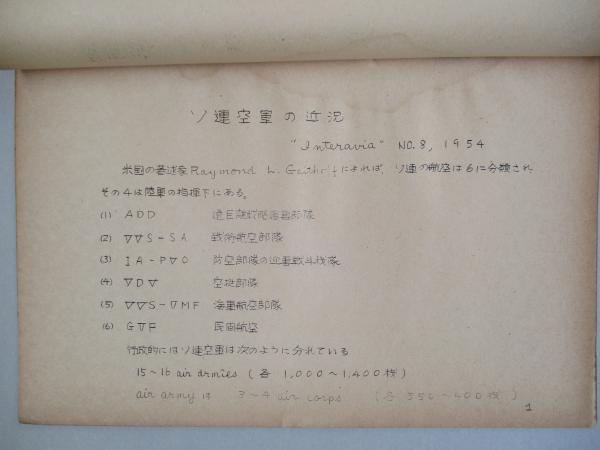 ソ連空軍の近況
"Interavia" NO.8, 1954
米国の著述家 Raymond L. Garthoffによれば、ソ連の航空は6に分類され
その4は陸軍の指揮下にある。
(1) ADD 遠距離戦略爆撃部隊
(2) ∇∇S-SA 戦術航空部隊
(3) IA-P∇O 防空部隊の迎撃戦斗機隊
(4) ∇D∇ 空挺部隊
(5) ∇∇S-∇MF 海軍航空部隊
(6) G∇F 民間航空
行政的にはソ連空軍は次のように分れている
15~16 air armies (各 1,000~1,400機)
air army は 3~4 air corps (各 350~400機)
1